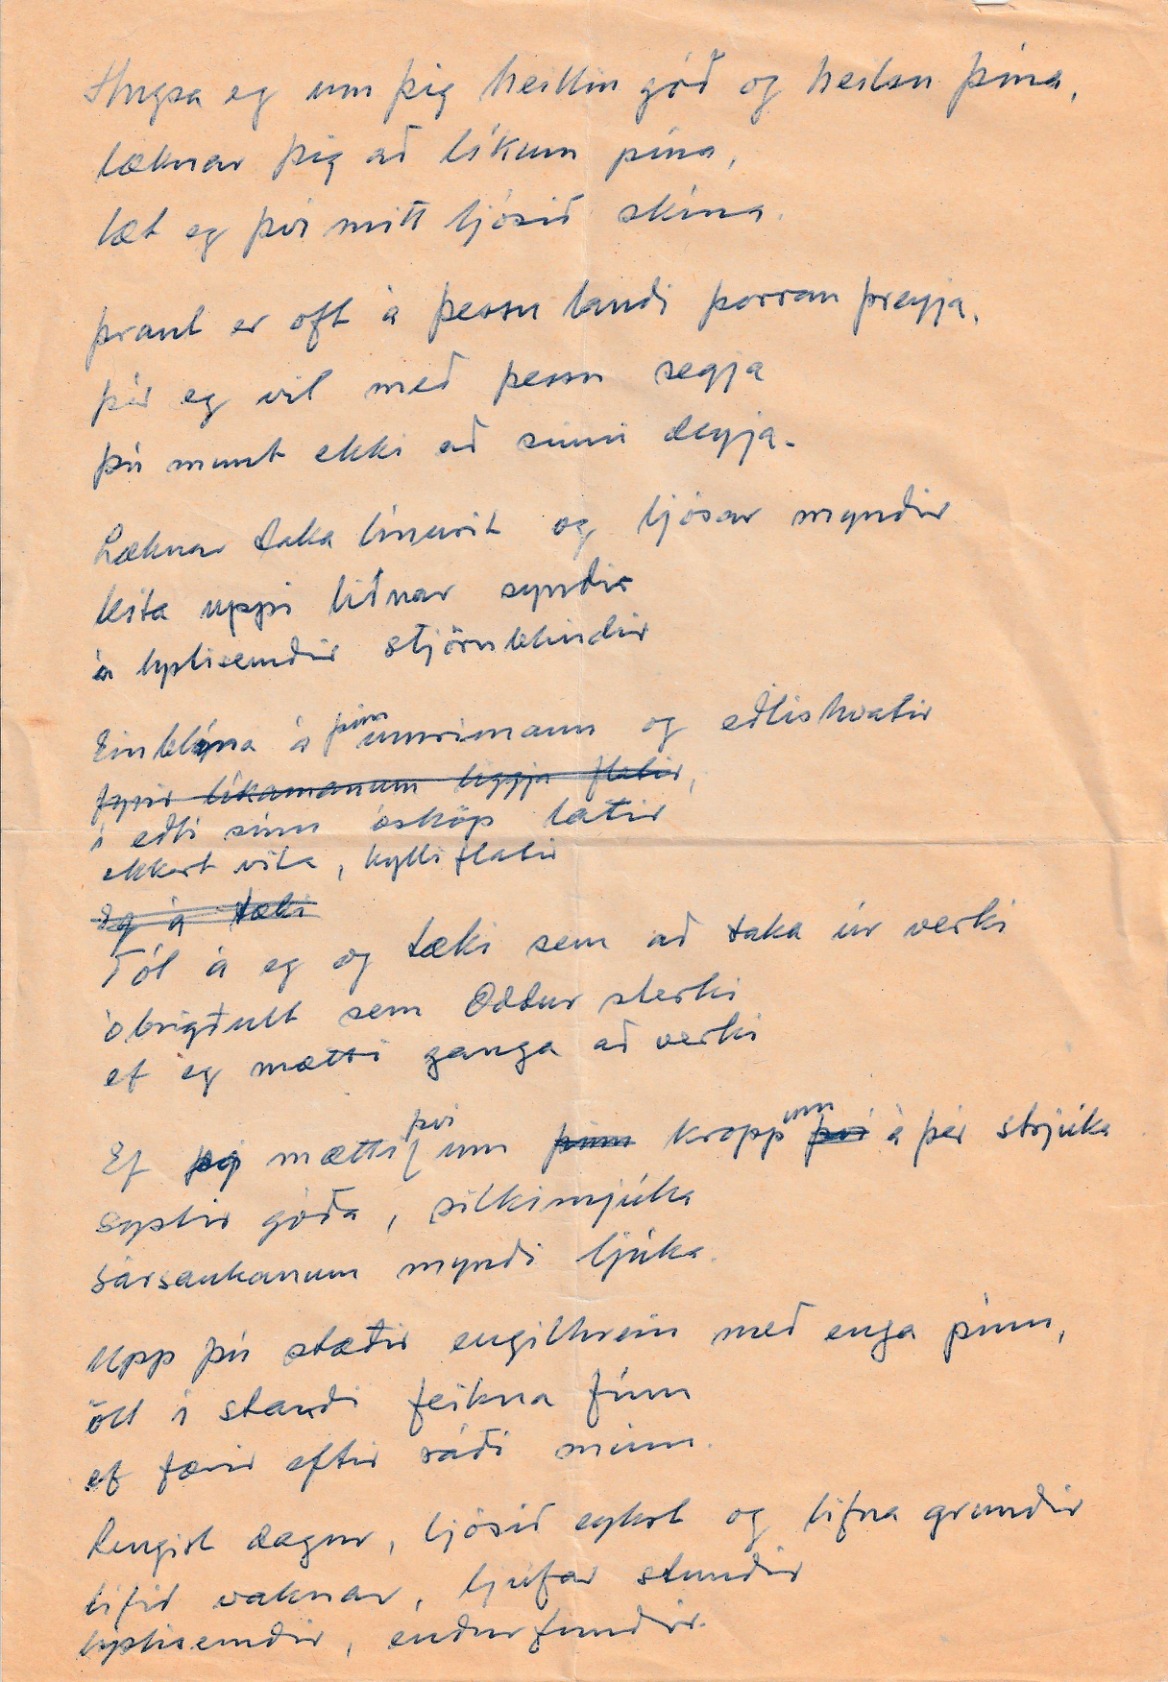 Hugsa eg um þig heillin góð og heilsu þína,
læknar þig að líkum pína,
læt eg því mitt ljósið skína.
Þraut er oft á þessu landi þorran þreyja,
þér eg vil með þessu segja
þú munt ekki að sinni deyja.
Læknar taka línurit og ljósar myndir
leita uppi liðnar syndir
á lystisemdir stjörnblindir
Einblína á þína innrimann og eðlishvatir
fyrir líkamanum liggja flatir,
í eðli sínu ósköp latir
ekkert vita, kylliflatir
Eg á tæki
Tól á eg og tæki sem að taka úr verki
óbrigðult sem Oddur sterki
ef eg mætti ganga að verki
Ef eg mætti því um þinn kropp um því á þér strjúka
systir góða, silkimjúka
sársaukanum myndi ljúka.
Upp þú stæðir engilhrein með enga pínu,
öll í standi feikna fínu
ef færir eftir ráði mínu.
Lengist dagur, ljósið eykst og lifna grundir
lífið vaknar, ljúfar stundir
lystisemdir, endurfundir.